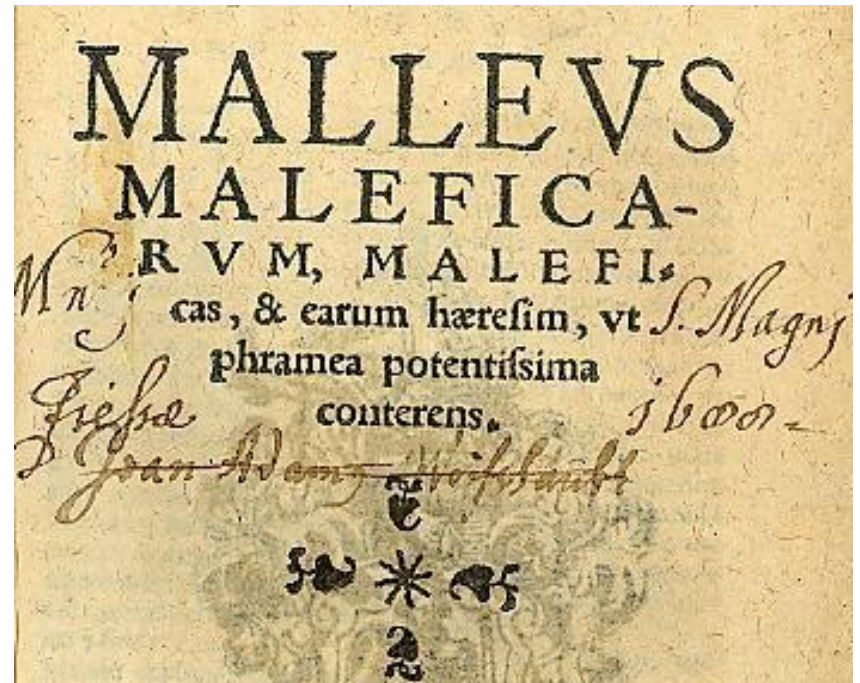 MALLEVS
MALEFICA-
RVM, MALEFI-
cas, & earum hæreſim, vt
phramea potentiſſima
conterens.
S. Magnj
Fieſsæ
Joan Adamg